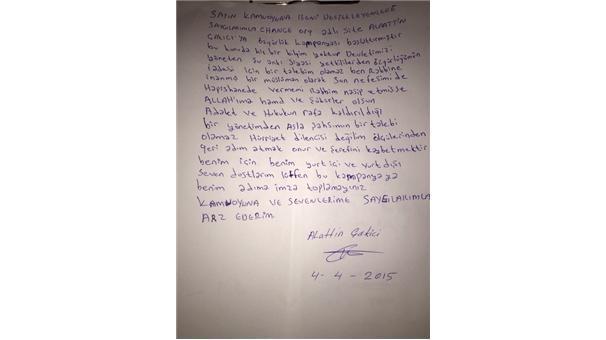 SAYIN KAMUOYUNA BENİ DESTEKLEYENLERE
SAYGILARIMLA CHANGE org adlı site ALAATTİN
ÇAKICI'YA özgürlük kampanyası başlatmıştır
bu konuda hiç bir bilgim yoktur Devletimizi
yöneten şu anki siyasi yetkililerden özgürlüğümün
iadesi için bir talebim olamaz ben Rabbine
inanmış bir müslüman olarak Son nefesimi de
Hapishanede vermemi Rabbim nasip etmişse
ALLAH'ıma hamd ve şükürler olsun
Adalet ve Hukukun rafa kaldırıldığı
bir yönetimden Asla şahsımın bir talebi
olamaz Hürriyet dilencisi değilim ölçülerinden
geri adım atmak onur ve şerefini kaybetmektir
benim için benim yurt içi ve yurt dışı
seven dostlarım lütfen bu kampanyaya
benim adıma imza toplamayınız
KAMUOYUNA VE SEVENLERİME SAYGILARIMLA
ARZ EDERİM
Alattin Çakici
4-4-2015